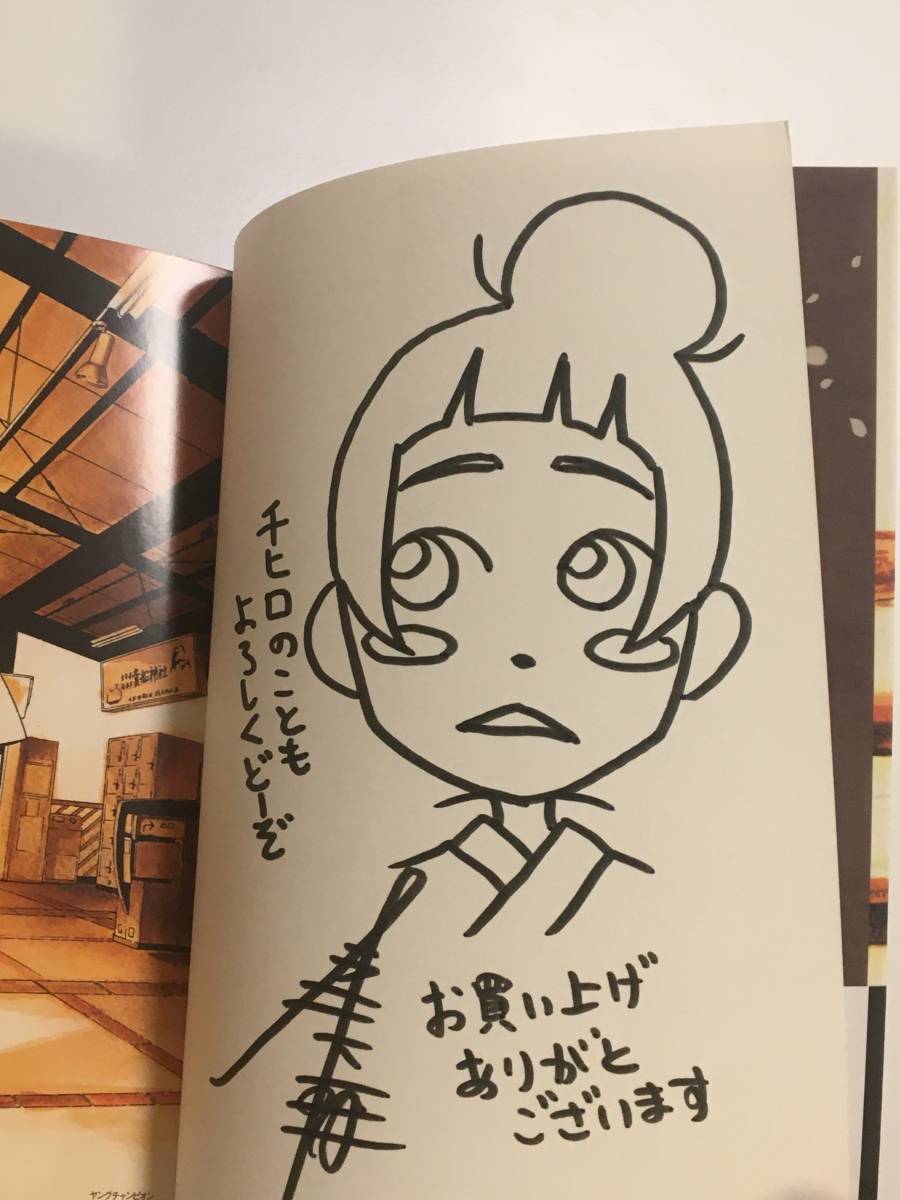 チヒロのことも
よろしくどーぞ
お買い上げ
ありがと
ございます
貴船神社
ヤングチャンピオン